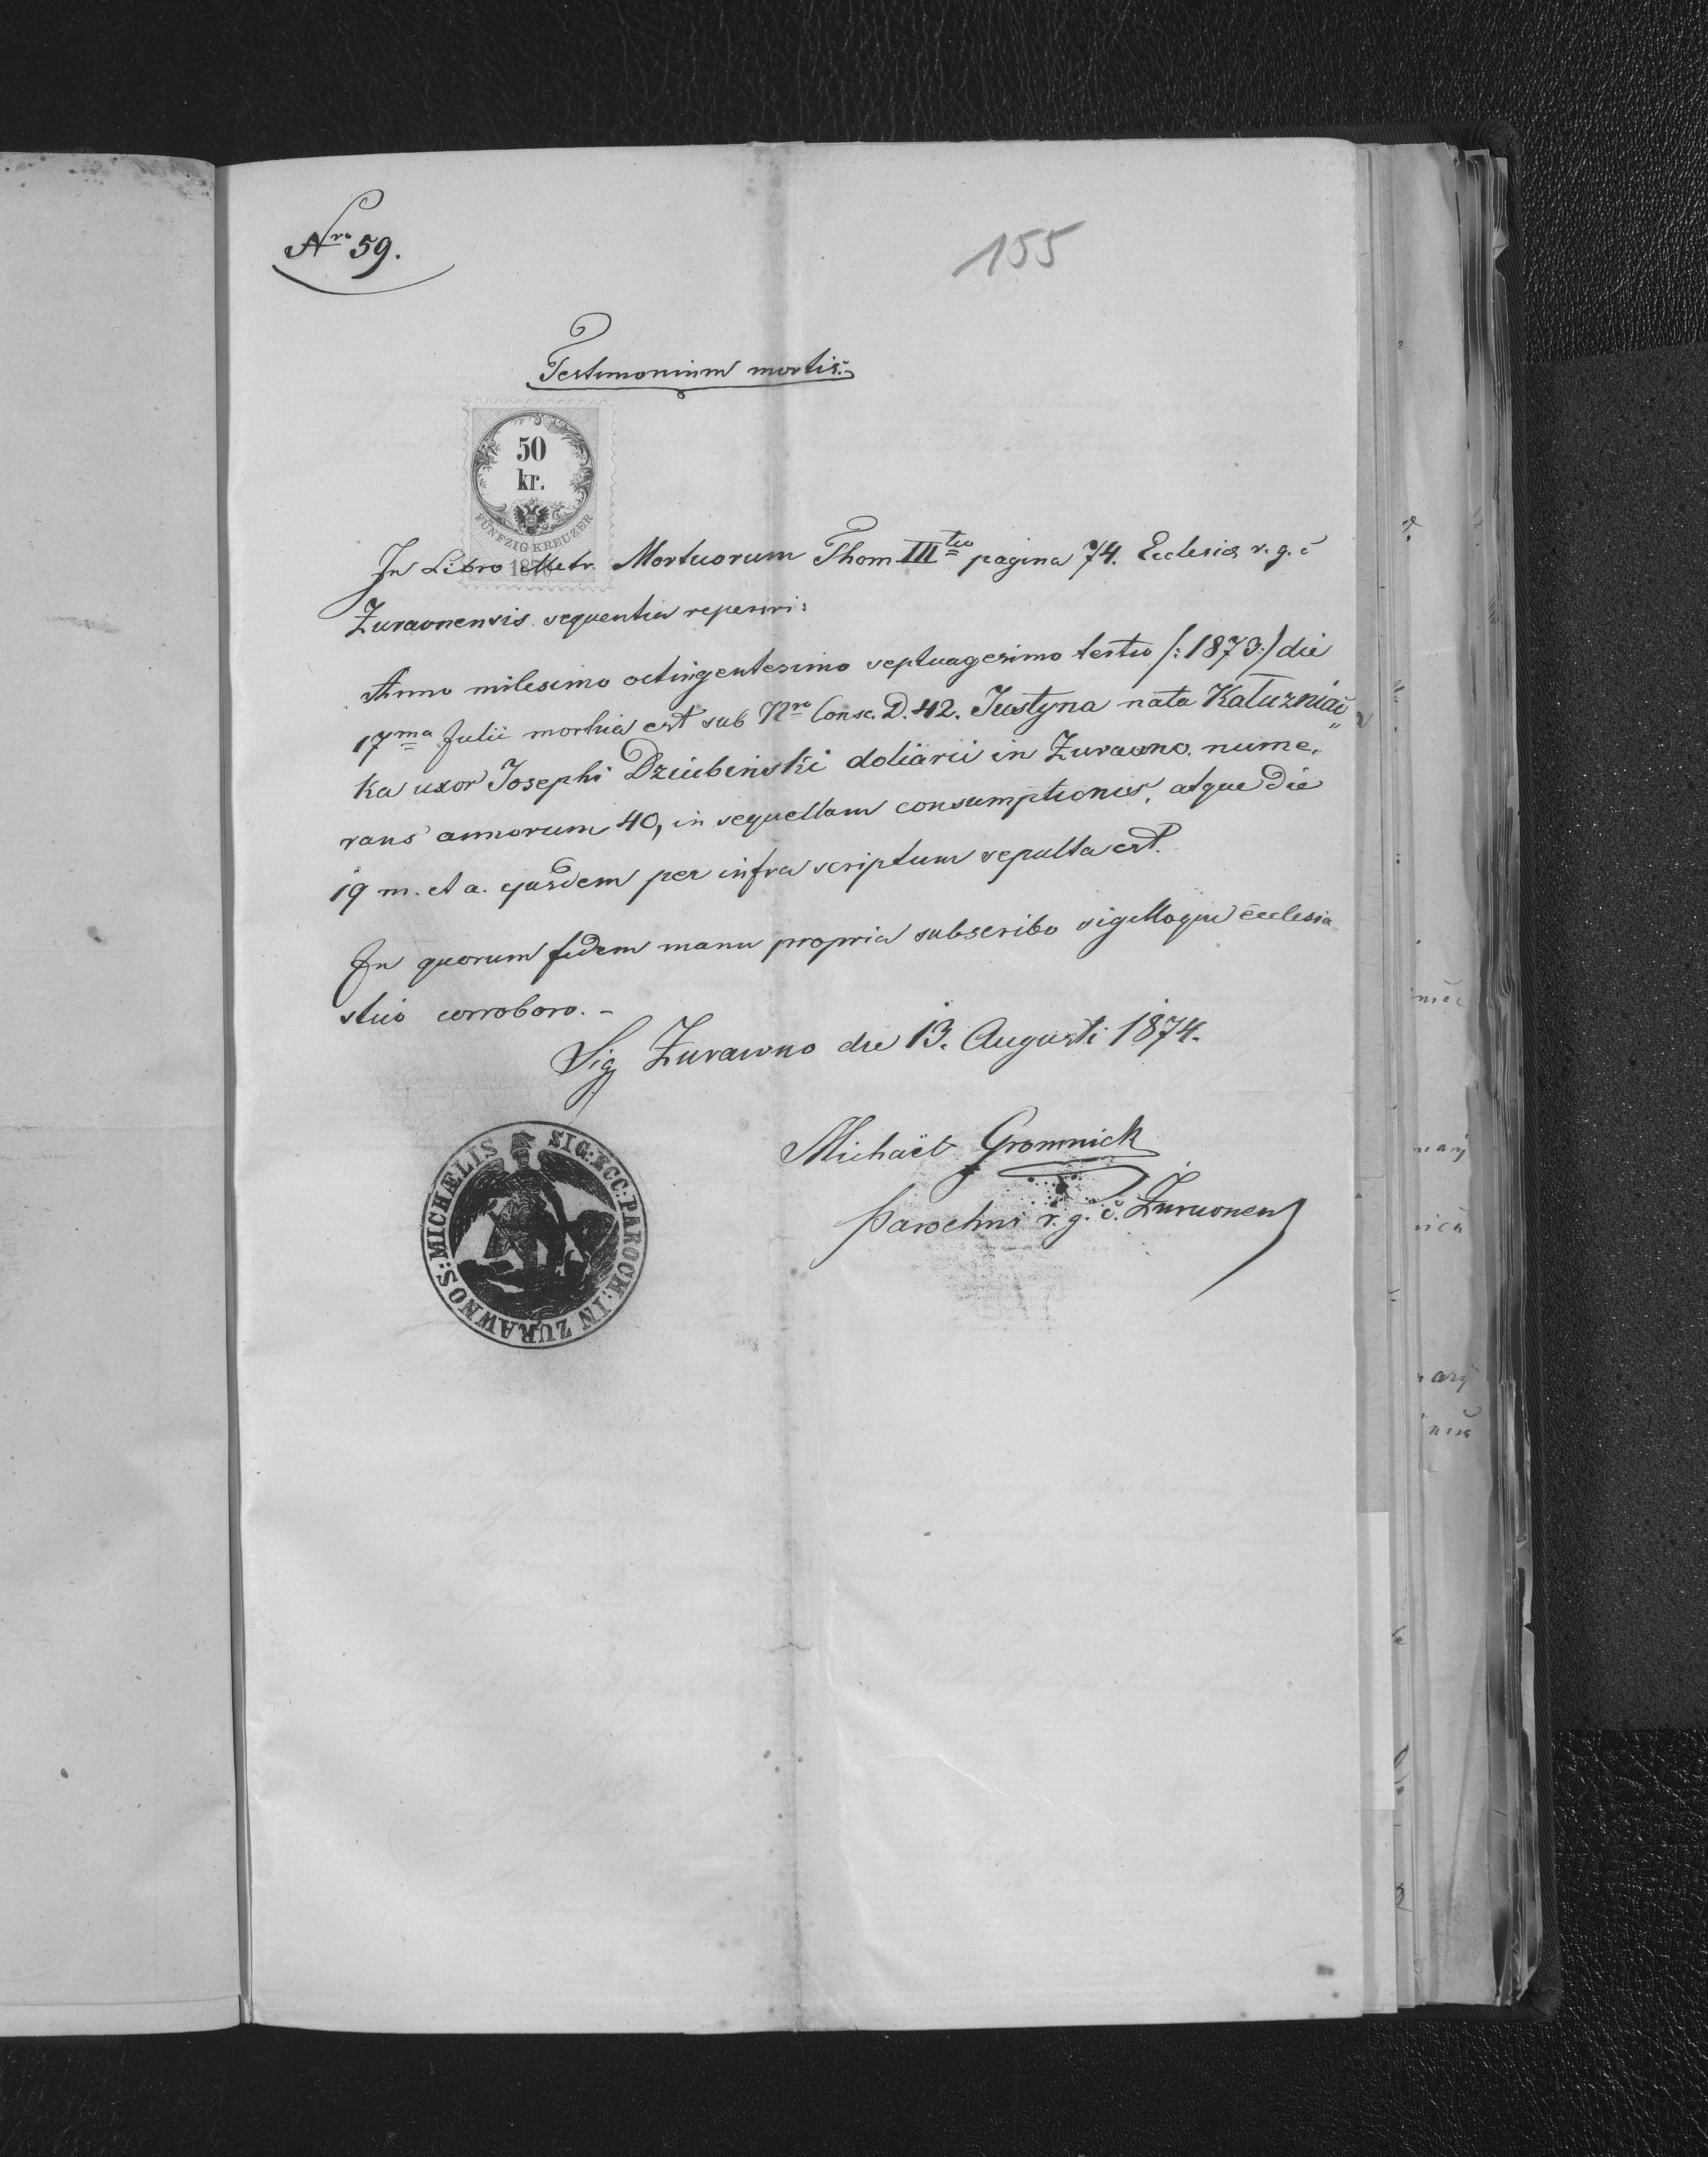 Nro 59.
155
Testimonium mortis.
50
kr.
FÜNFZIG KREUZER
1870
In Libro Metr. Mortuorum Thom IIItio pagina 74. Ecclesia r. g. c
Zuravnensis sequentia reperiri:
Anno milesimo octingentesimo septuagesimo tertio /:1873:/ die
17ma Julii mortua est sub Nro Consc. D. 42. Justyna nata Kałuzniac
ka uxor Josephi Dziubinski doliarii in Zurawno. nume,
rans annorum 40, in sequellam consumptionis, atque die
19 m. et a. ejusdem per infra scriptum sepulta est.
In quorum fidem manu propria subscribo sigilloque ecclesia
stico corroboro. -
Sig Zurawno die 13. Augusti 1874.
SIG: ECC: PAROCH: IN ZURAWNO S: MICHÆLIS
Michaël Gromnick
Parochus r. g. c. Zuravnen